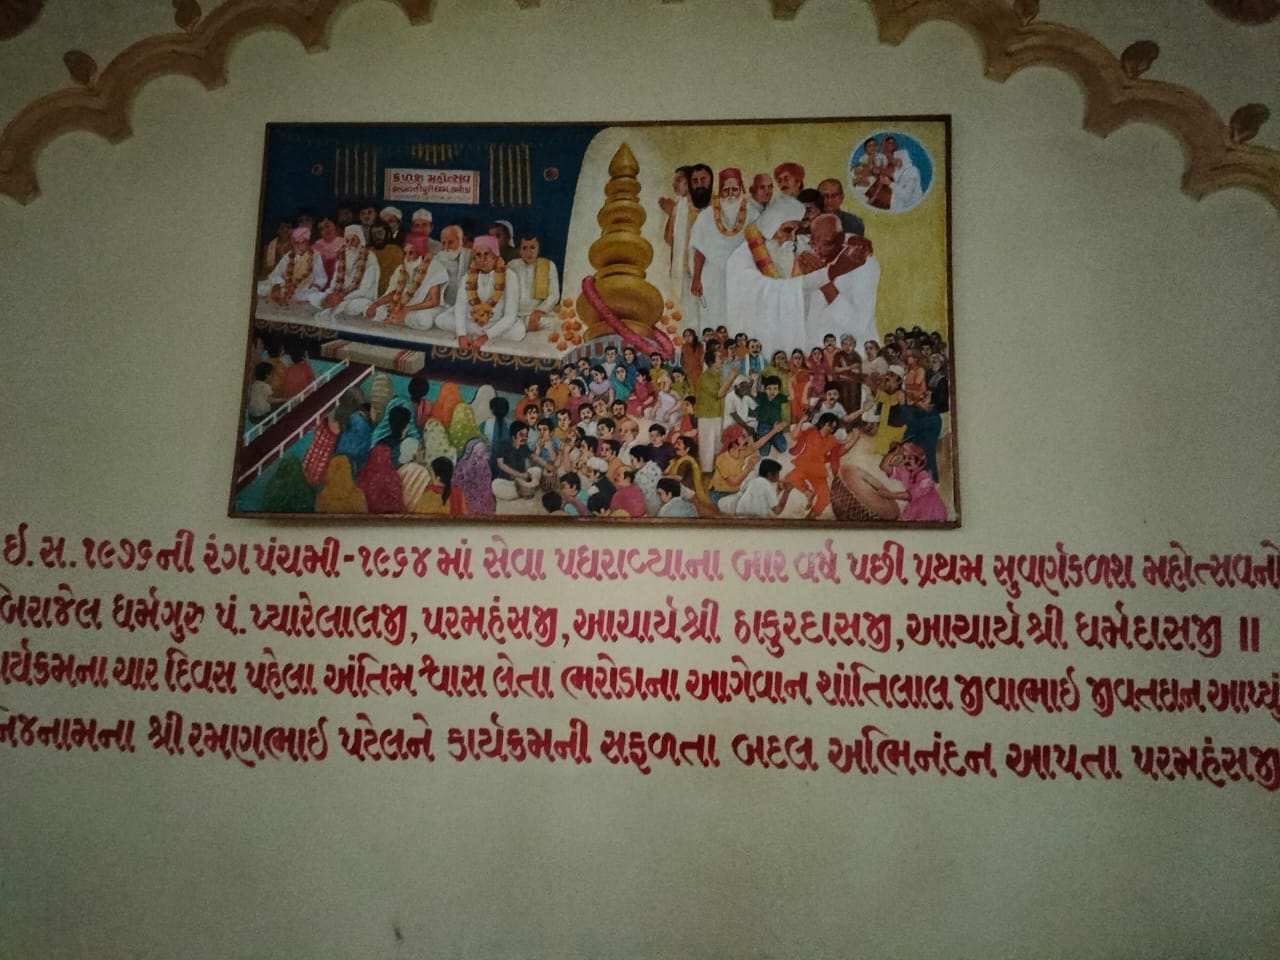 કળશ મહોત્સવ
ઇ.સ.૧૯૭૬ની રંગપંચમી-૧૯૬૪માં સેવા પધરાવ્યાના બાર વર્ષ પછી પ્રથમ સુવર્ણકળશ મહોત્સવનો
બિરાજેલ ધર્મગુરુ પં.પ્યારેલાલજી,પરમહંસજી,આચાર્યશ્રી ઠાકુરદાસજી,આચાર્યશ્રી ધર્મદાસજી ॥
ર્યક્રમના ચાર દિવસ પહેલા અંતિમ શ્વાસ લેતા ભરોડાના આગેવાન શાંતિલાલ જીવાભાઇ જીવતદાન આપ્યું
નિજનામના શ્રી રમાણભાઇ પટેલને કાર્યક્રમની સફળતા બદલ અભિનંદન આપતા પરમહંસજી